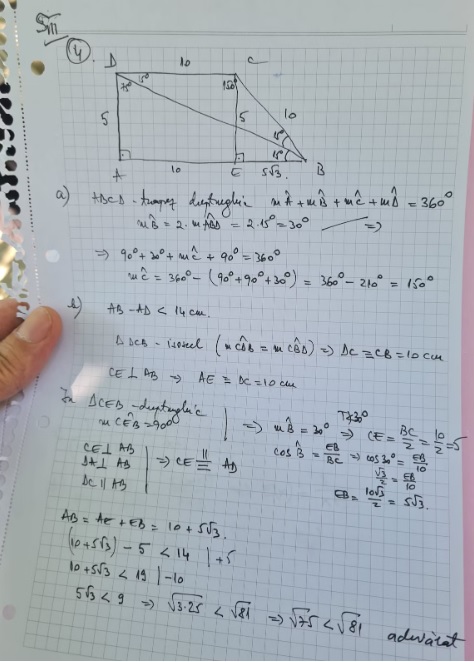 SIII
4.
D 10 C
75° 15° 150°
5 5 10
15°
15°
A 10 E 5√3 B
a) ABCD - trapez dreptunghic m Â + m B̂ + m Ĉ + m D̂ = 360°
m B̂ = 2 · m AB̂D = 2·15° = 30° =>
=> 90° + 30° + m Ĉ + 90° = 360°
m Ĉ = 360° - (90° + 90° + 30°) = 360° - 210° = 150°
b) AB - AD < 14 cm.
Δ DCB - isoscel (m CD̂B = m CB̂D) => DC ≡ CB = 10 cm
CE ⊥ AB => AE ≡ DC = 10 cm
În ΔCEB - dreptunghic
m CÊB = 90° => m B̂ = 30° T∢30° => CE = BC/2 = 10/2 = 5
cos B̂ = EB/BC => cos 30° = EB/10
√3/2 = EB/10
EB = 10√3/2 = 5√3.
CE ⊥ AB
DA ⊥ AB
DC ∥ AB => CE ∥≡ AD
AB = AE + EB = 10 + 5√3.
(10 + 5√3) - 5 < 14 | +5
10 + 5√3 < 19 | -10
5√3 < 9 => √3·25 < √81 => √75 < √81 adevărat